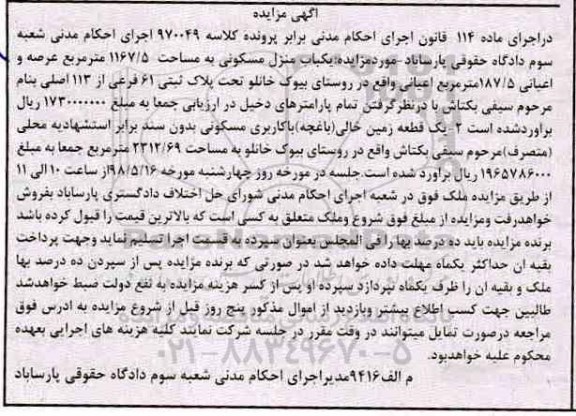 اگهی مزایده
دراجرای ماده ۱۱۴ قانون اجرای احکام مدنی برابر پرونده کلاسه ۹۷۰۰۴۹ اجرای احکام مدنی شعبه
سوم دادگاه حقوقی پارساباد-موردمزایده:یکباب منزل مسکونی به مساحت ۱۱۶۷/۵ مترمربع عرصه و
اعیانی ۱۸۷/۵مترمربع اعیانی واقع در روستای بیوک خانلو تحت پلاک ثبتی ۶۱ فرعی از ۱۱۳ اصلی بنام
مرحوم سیفی بکتاش با درنظرگرفتن تمام پارامترهای دخیل در ارزیابی جمعا به مبلغ ۱۷۳۰۰۰۰۰۰۰ ریال
براوردشده است ۲-یک قطعه زمین خالی(باغچه)باکاربری مسکونی بدون سند برابر استشهادیه محلی
(متصرف)مرحوم سیفی بکتاش واقع در روستای بیوک خانلو به مساحت ۲۳۱۲/۶۹ مترمربع جمعا به مبلغ
۱۹۶۵۷۸۶۰۰۰ ریال براورد شده است.جلسه در مورخه روز چهارشنبه مورخه ۹۸/۵/۱۶از ساعت ۱۰ الی ۱۱
از طریق مزایده ملک فوق در شعبه اجرای احکام مدنی شورای حل اختلاف دادگستری پارساباد بفروش
خواهدرفت ومزایده از مبلغ فوق شروع وملک متعلق به کسی است که بالاترین قیمت را قبول کرده باشد
برنده مزایده باید ده درصد بها را فی المجلس بعنوان سپرده به قسمت اجرا تسلیم نماید وجهت پرداخت
بقیه ان حداکثر یکماه مهلت داده خواهد شد در صورتی که برنده مزایده پس از سپردن ده درصد بها
ملک و بقیه ان را ظرف یکماه نپردازد سپرده او پس از کسر هزینه مزایده به نفع دولت ضبط خواهدشد
طالبین جهت کسب اطلاع بیشتر وبازدید از اموال مذکور پنج روز قبل از شروع مزایده به ادرس فوق
مراجعه درصورت تمایل میتوانند در وقت مقرر در جلسه شرکت نمایند کلیه هزینه های اجرایی بعهده
محکوم علیه خواهدبود.
م الف۹۴۱۶مدیراجرای احکام مدنی شعبه سوم دادگاه حقوقی پارساباد
۰۲۱-۸۸۳۴۹۶۷۰-۵